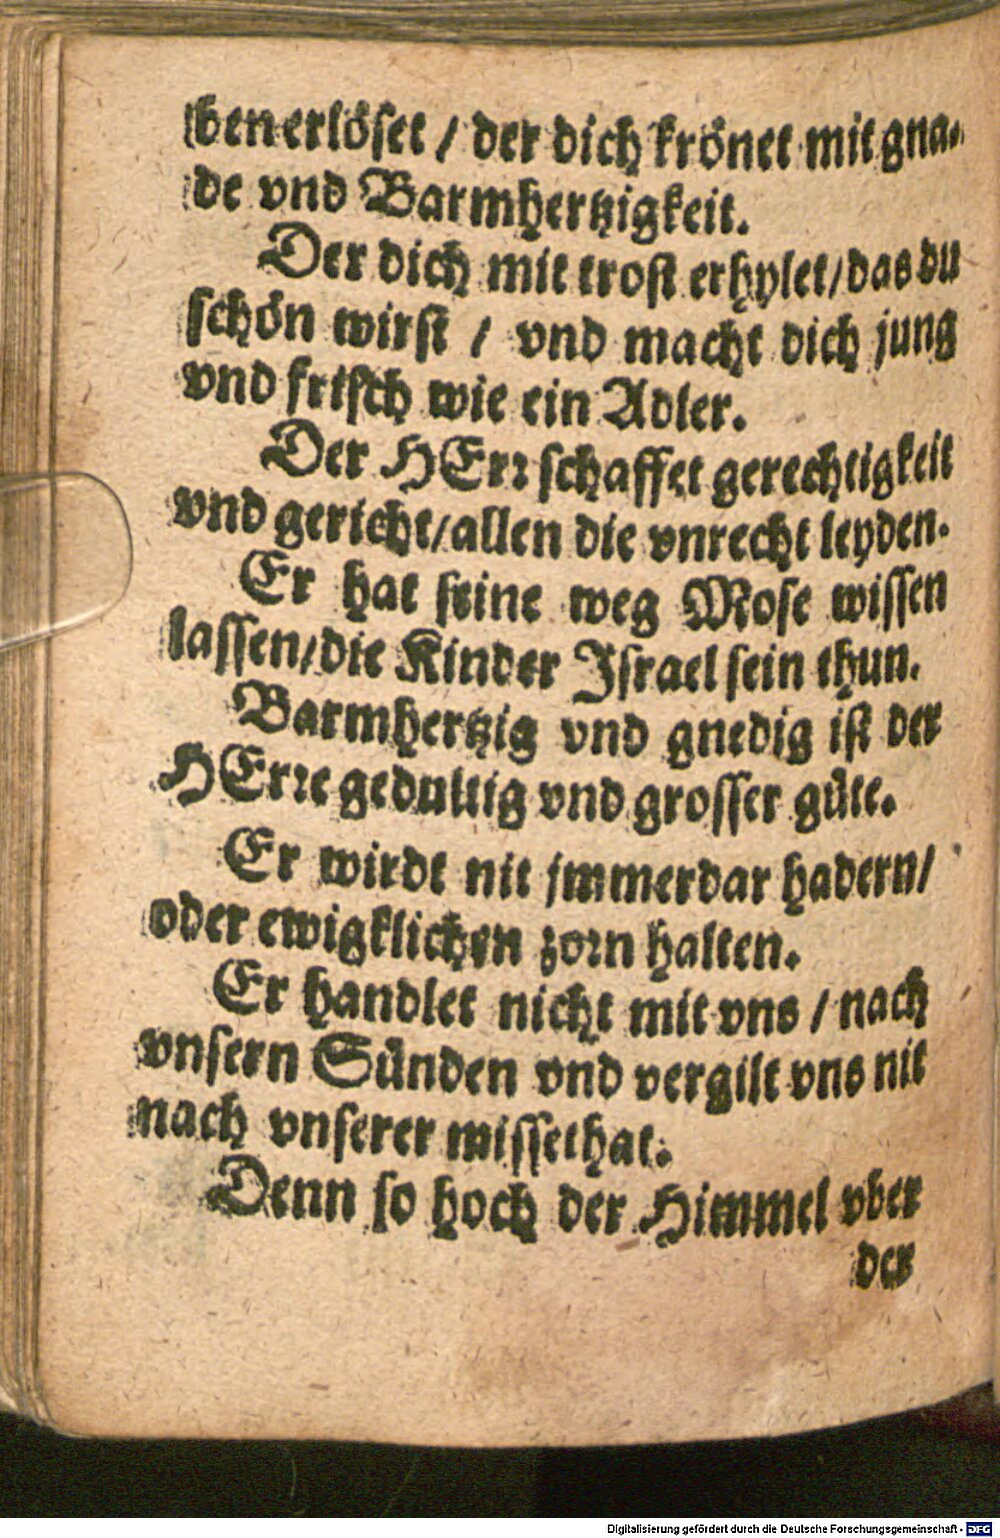 ben erlöset / der dich krönet mit gna-
de vnd Barmhertzigkeit.
Der dich mit trost erhylet/das du
schön wirst / vnd macht dich jung
vnd frisch wie ein Adler.
Der HErr schaffet gerechtigkeit
vnd gericht/allen die vnrecht leyden.
Er hat seine weg Mose wissen
lassen/die Kinder Israel sein thun.
Barmhertzig vnd gnedig ist der
HErre gedultig vnd grosser güte.
Er wirdt nit jmmerdar hadern/
oder ewigklichen zorn halten.
Er handlet nicht mit vns / nach
vnsern Sünden vnd vergilt vns nit
nach vnserer missethat.
Denn so hoch der Himmel vber
der
Digitalisierung gefördert durch die Deutsche Forschungsgemeinschaft - DFG